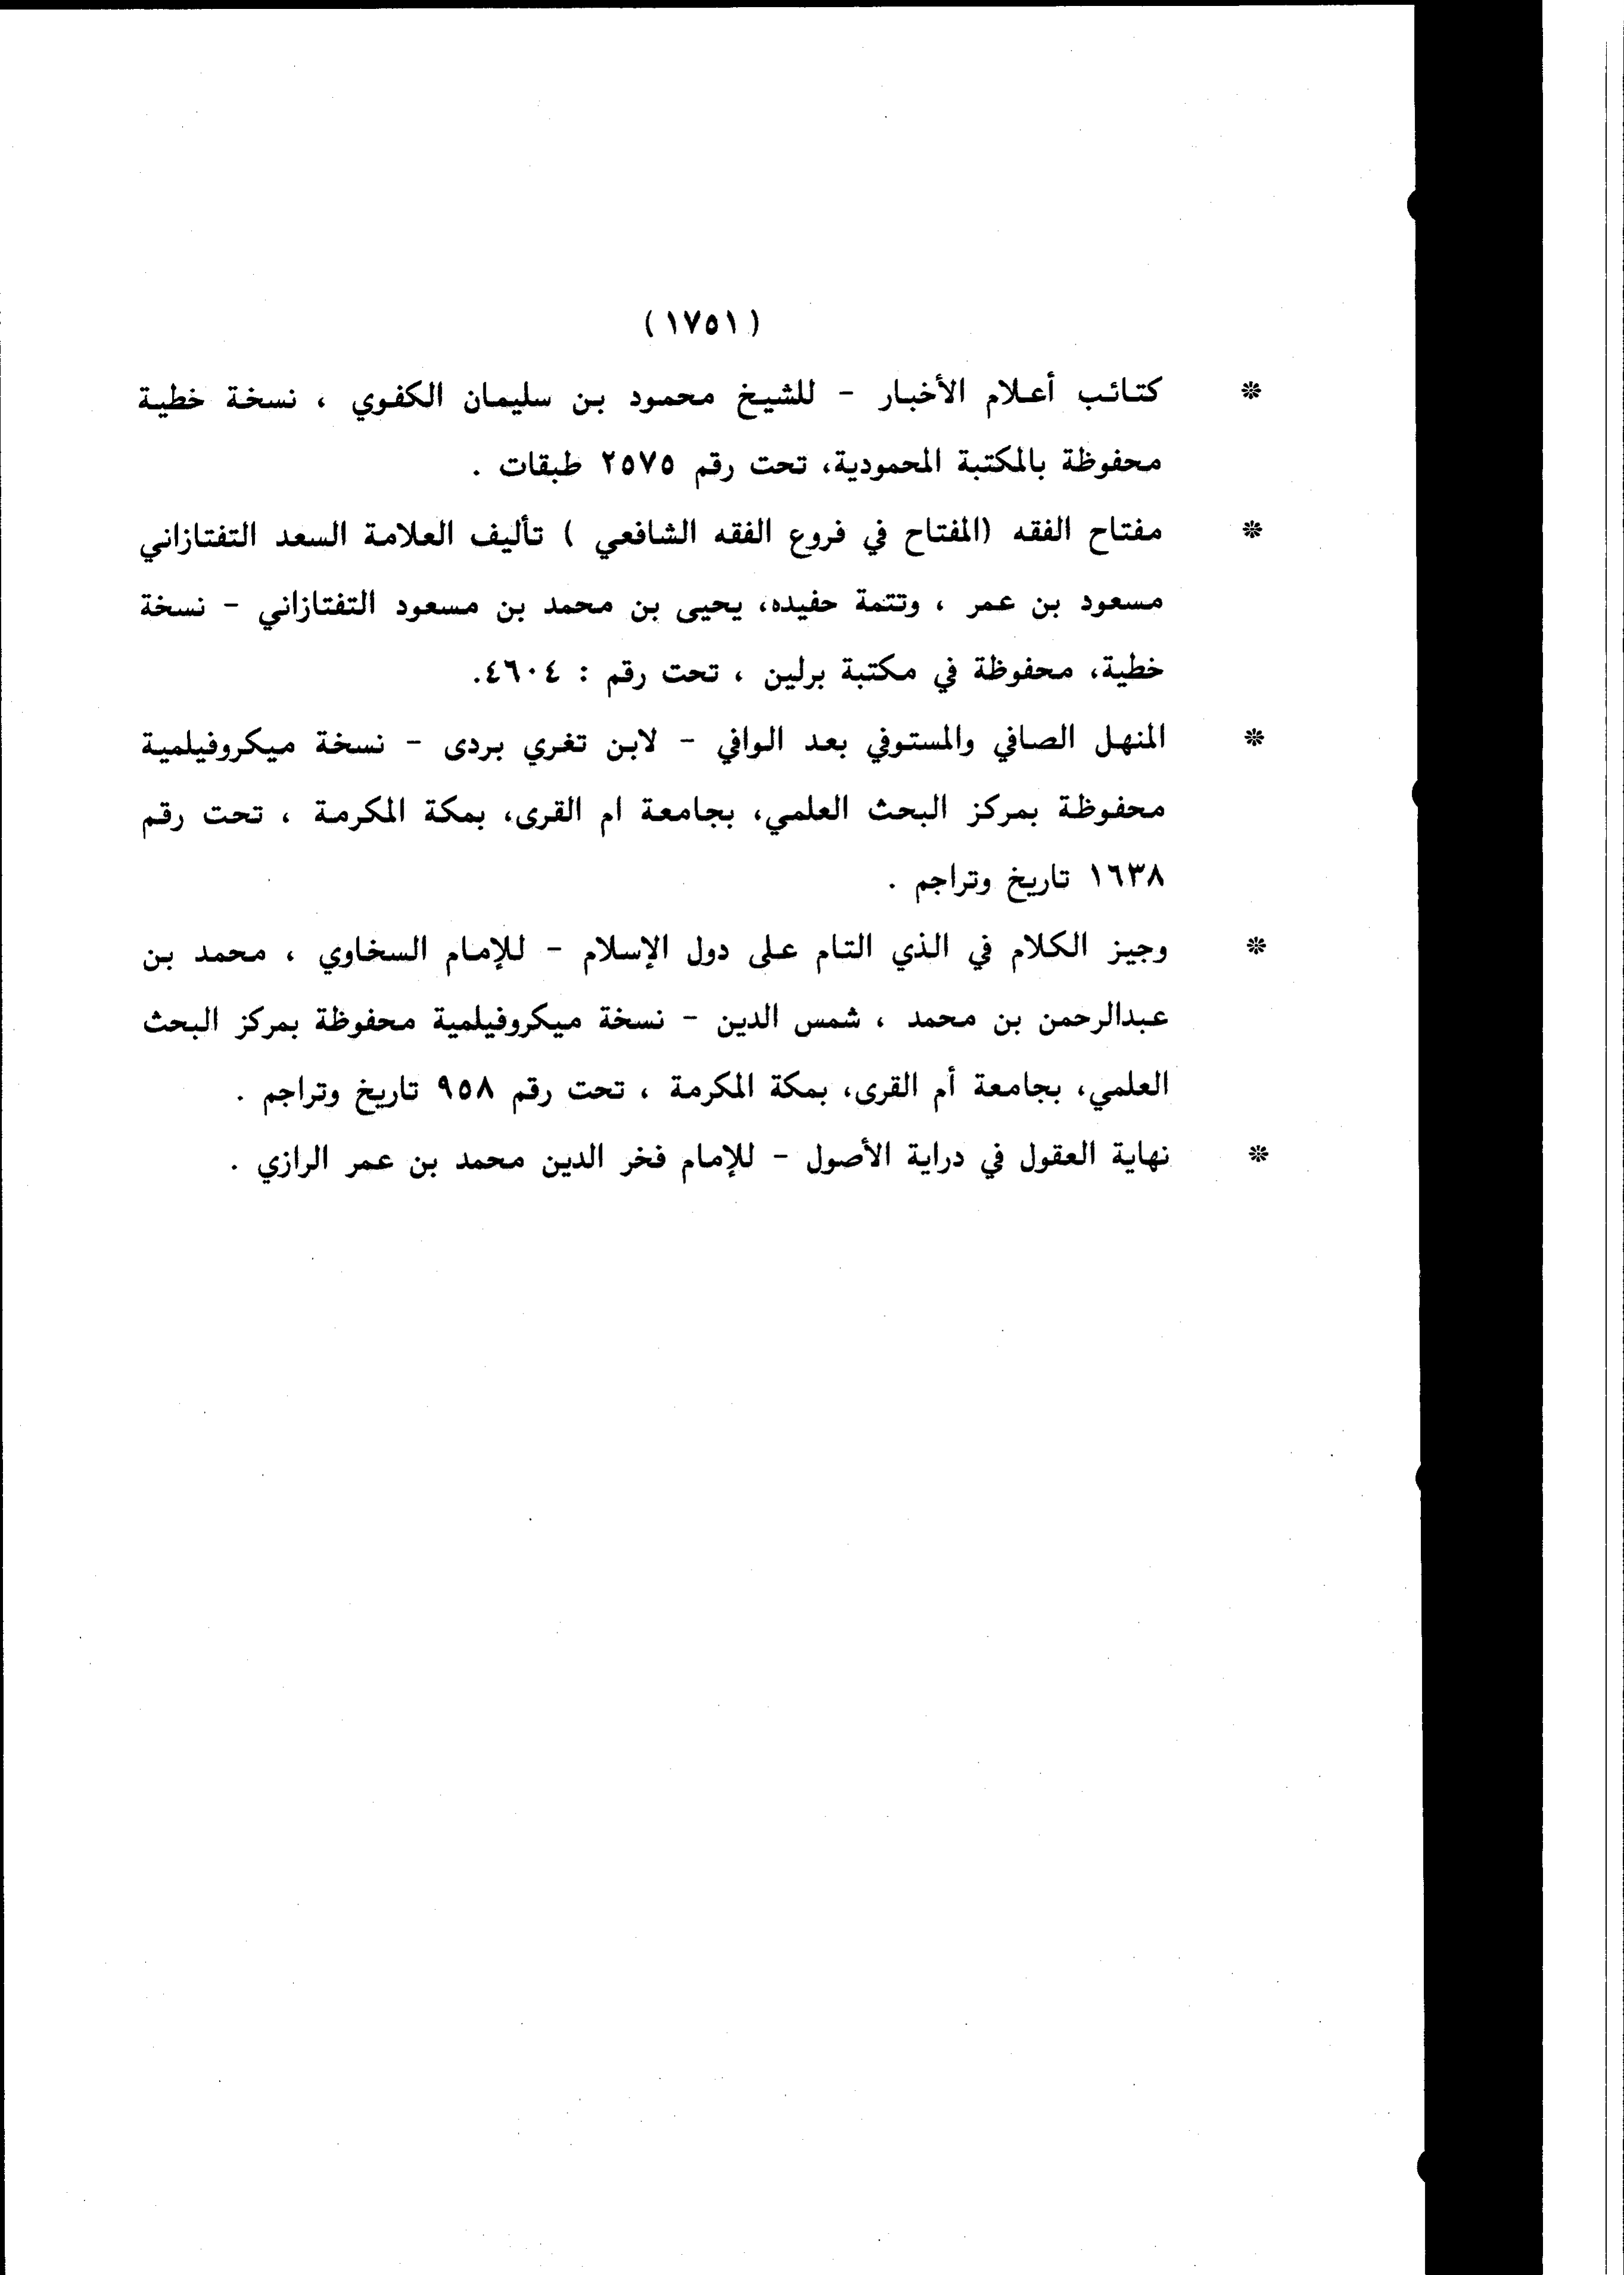 (١٧٥١)
* كتائب أعلام الأخبار - للشيخ محمود بن سليمان الكفوي ، نسخة خطية
محفوظة بالمكتبة المحمودية، تحت رقم ٢٥٧٥ طبقات .
* مفتاح الفقه (المفتاح في فروع الفقه الشافعي ) تأليف العلامة السعد التفتازاني
مسعود بن عمر ، وتتمة حفيده، يحيى بن محمد بن مسعود التفتازاني - نسخة
خطية، محفوظة في مكتبة برلين ، تحت رقم : ٤٦٠٤.
* المنهل الصافي والمستوفي بعد الوافي - لابن تغري بردى - نسخة ميكروفيلمية
محفوظة بمركز البحث العلمي، بجامعة ام القرى، بمكة المكرمة ، تحت رقم
١٦٣٨ تاريخ وتراجم .
* وجيز الكلام في الذي التام على دول الإسلام - للإمام السخاوي ، محمد بن
عبدالرحمن بن محمد ، شمس الدين - نسخة ميكروفيلمية محفوظة بمركز البحث
العلمي، بجامعة أم القرى، بمكة المكرمة ، تحت رقم ٩٥٨ تاريخ وتراجم .
* نهاية العقول في دراية الأصول - للإمام فخر الدين محمد بن عمر الرازي .